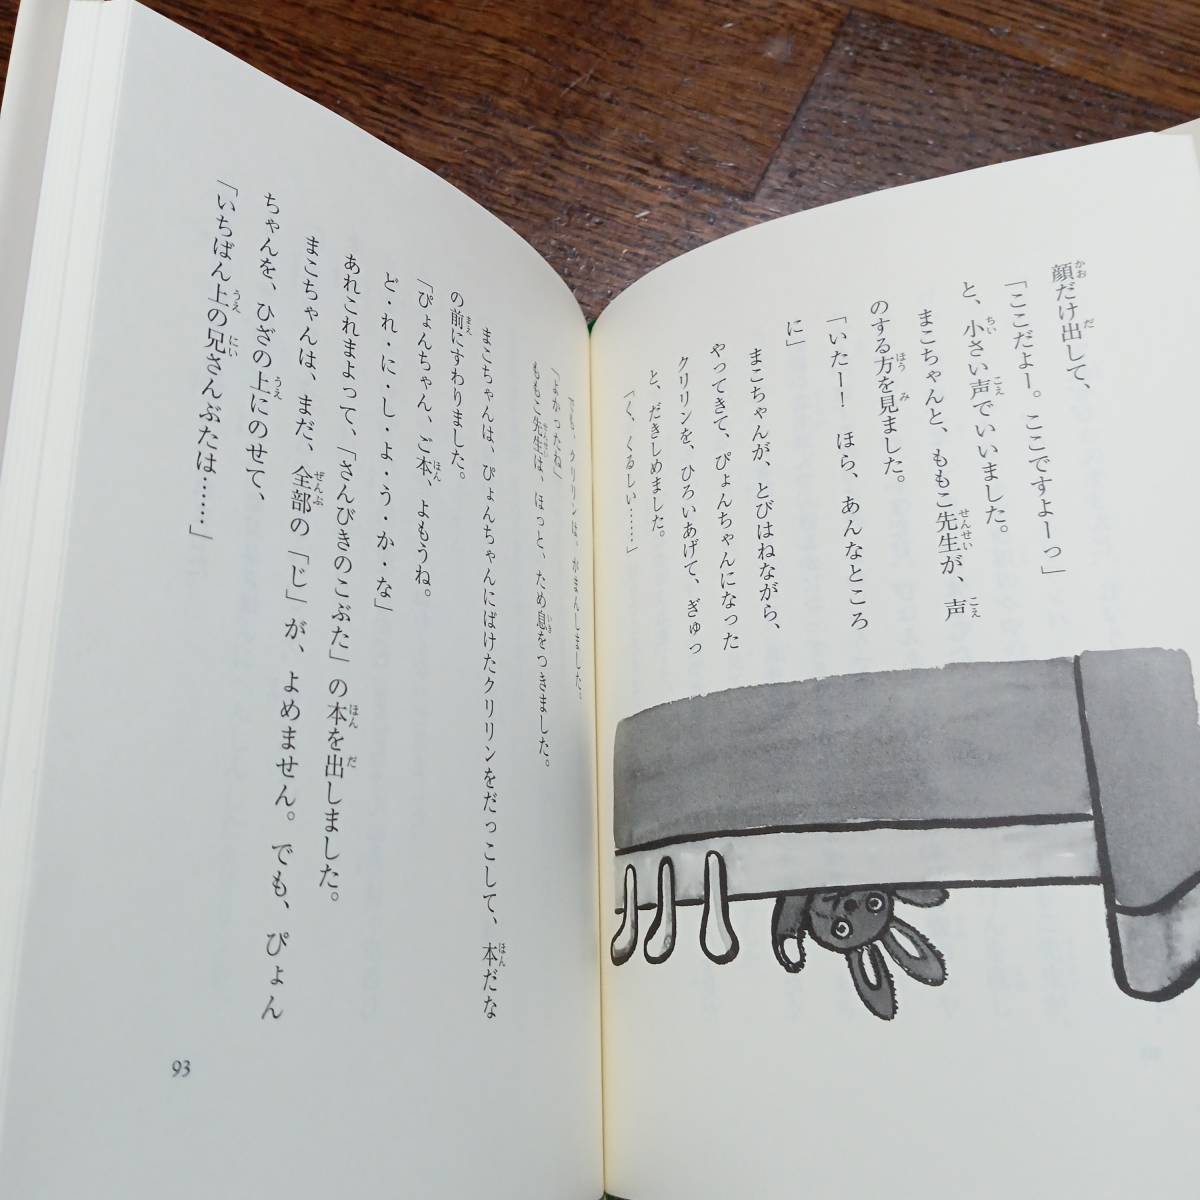 顔だけ出して、
「ここだよー。ここですよーっ」
と、小さい声でいいました。
まこちゃんと、ももこ先生が、声
のする方を見ました。
「いたー！　ほら、あんなところ
に」
まこちゃんが、とびはねながら、
やってきて、ぴょんちゃんになった
クリリンを、ひろいあげて、ぎゅっ
と、だきしめました。
「く、くるしい……」
でも、クリリンは、がまんしました。
「よかったね」
ももこ先生は、ほっと、ため息をつきました。
まこちゃんは、ぴょんちゃんにばけたクリリンをだっこして、本だな
の前にすわりました。
「ぴょんちゃん、ご本、よもうね。
ど・れ・に・し・よ・う・か・な」
あれこれまよって、「さんびきのこぶた」の本を出しました。
まこちゃんは、まだ、全部の「じ」が、よめません。でも、ぴょん
ちゃんを、ひざの上にのせて、
「いちばん上の兄さんぶたは……」
93